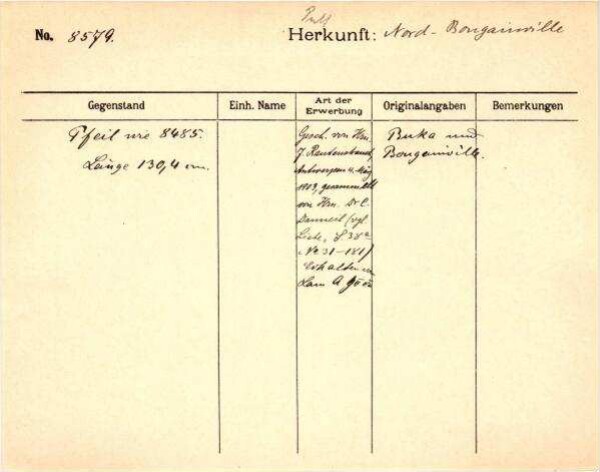 No. 8579.
Herkunft: Nord-Bougainville
Gegenstand
Einh. Name
Art der Erwerbung
Originalangaben
Bemerkungen
Pfeil wie 8485.
Länge 130,4 cm.
Gesch. von Hrn.
J.
Antwerpen
gesammelt
von Hrn. Dr. C.
(vgl.
Liste, 
No 31-181)
Erhalten
Buka und
Bougainville.